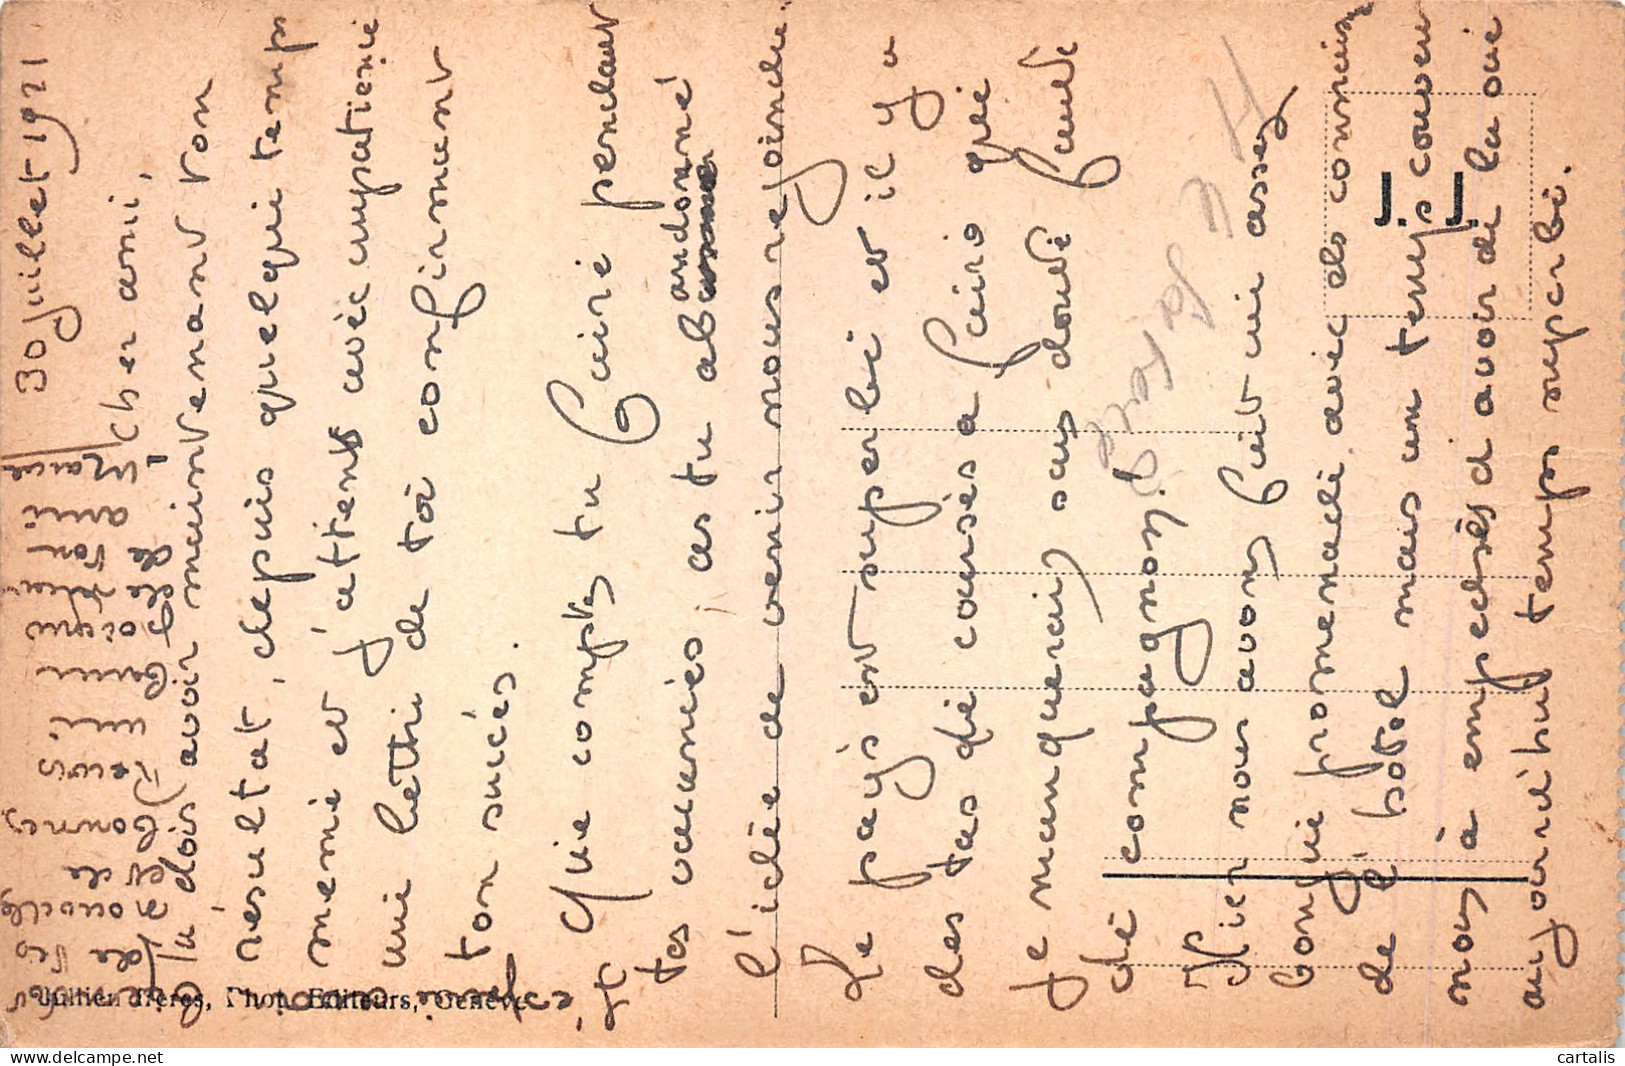 30 Juillet 1921
Cher ami,
tu dois avoir maintenant ton
résultat, depuis quelque temps
meme et j'attends avec impatience
une lettre de toi confirmant
ton succès.
Que comptes tu faire pendant
tes vacances, as tu abandonné
l'idée de venir nous rejoindre.
Le pays est superbe et il y a
des tas de courses a faire que
je manquerais sans doute faute
de compagnons.
Hier nous avons fait une assez
longue promenade avec des connaiss
de l'hotel mais un temps couvert
nous a empechés d'avoir de la vue
aujourd'hui temps superbe.
Donnes
de tes
nouvelles
et de
bonnes
Recois une
bonne
poignée
de
ton
ami
Jullien Frères, Phot. Editeurs, Genève
cartalis
www.delcampe.net